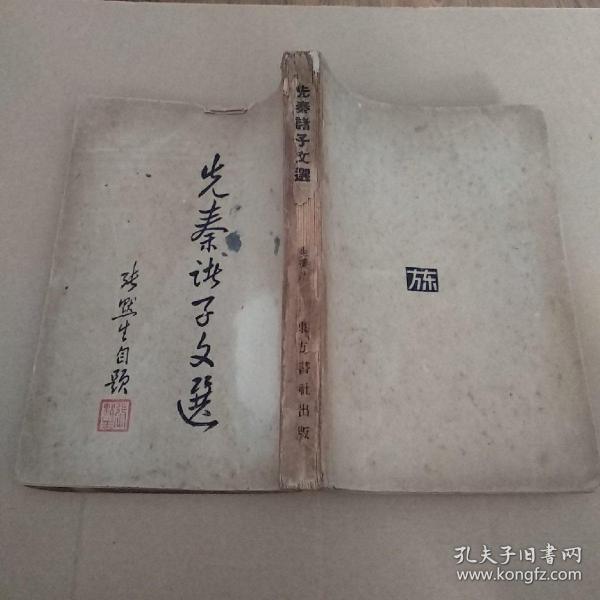 先秦諸子文選
張默生自題
先秦諸子文選
東方書社出版
孔夫子旧书网
www.kongfz.com